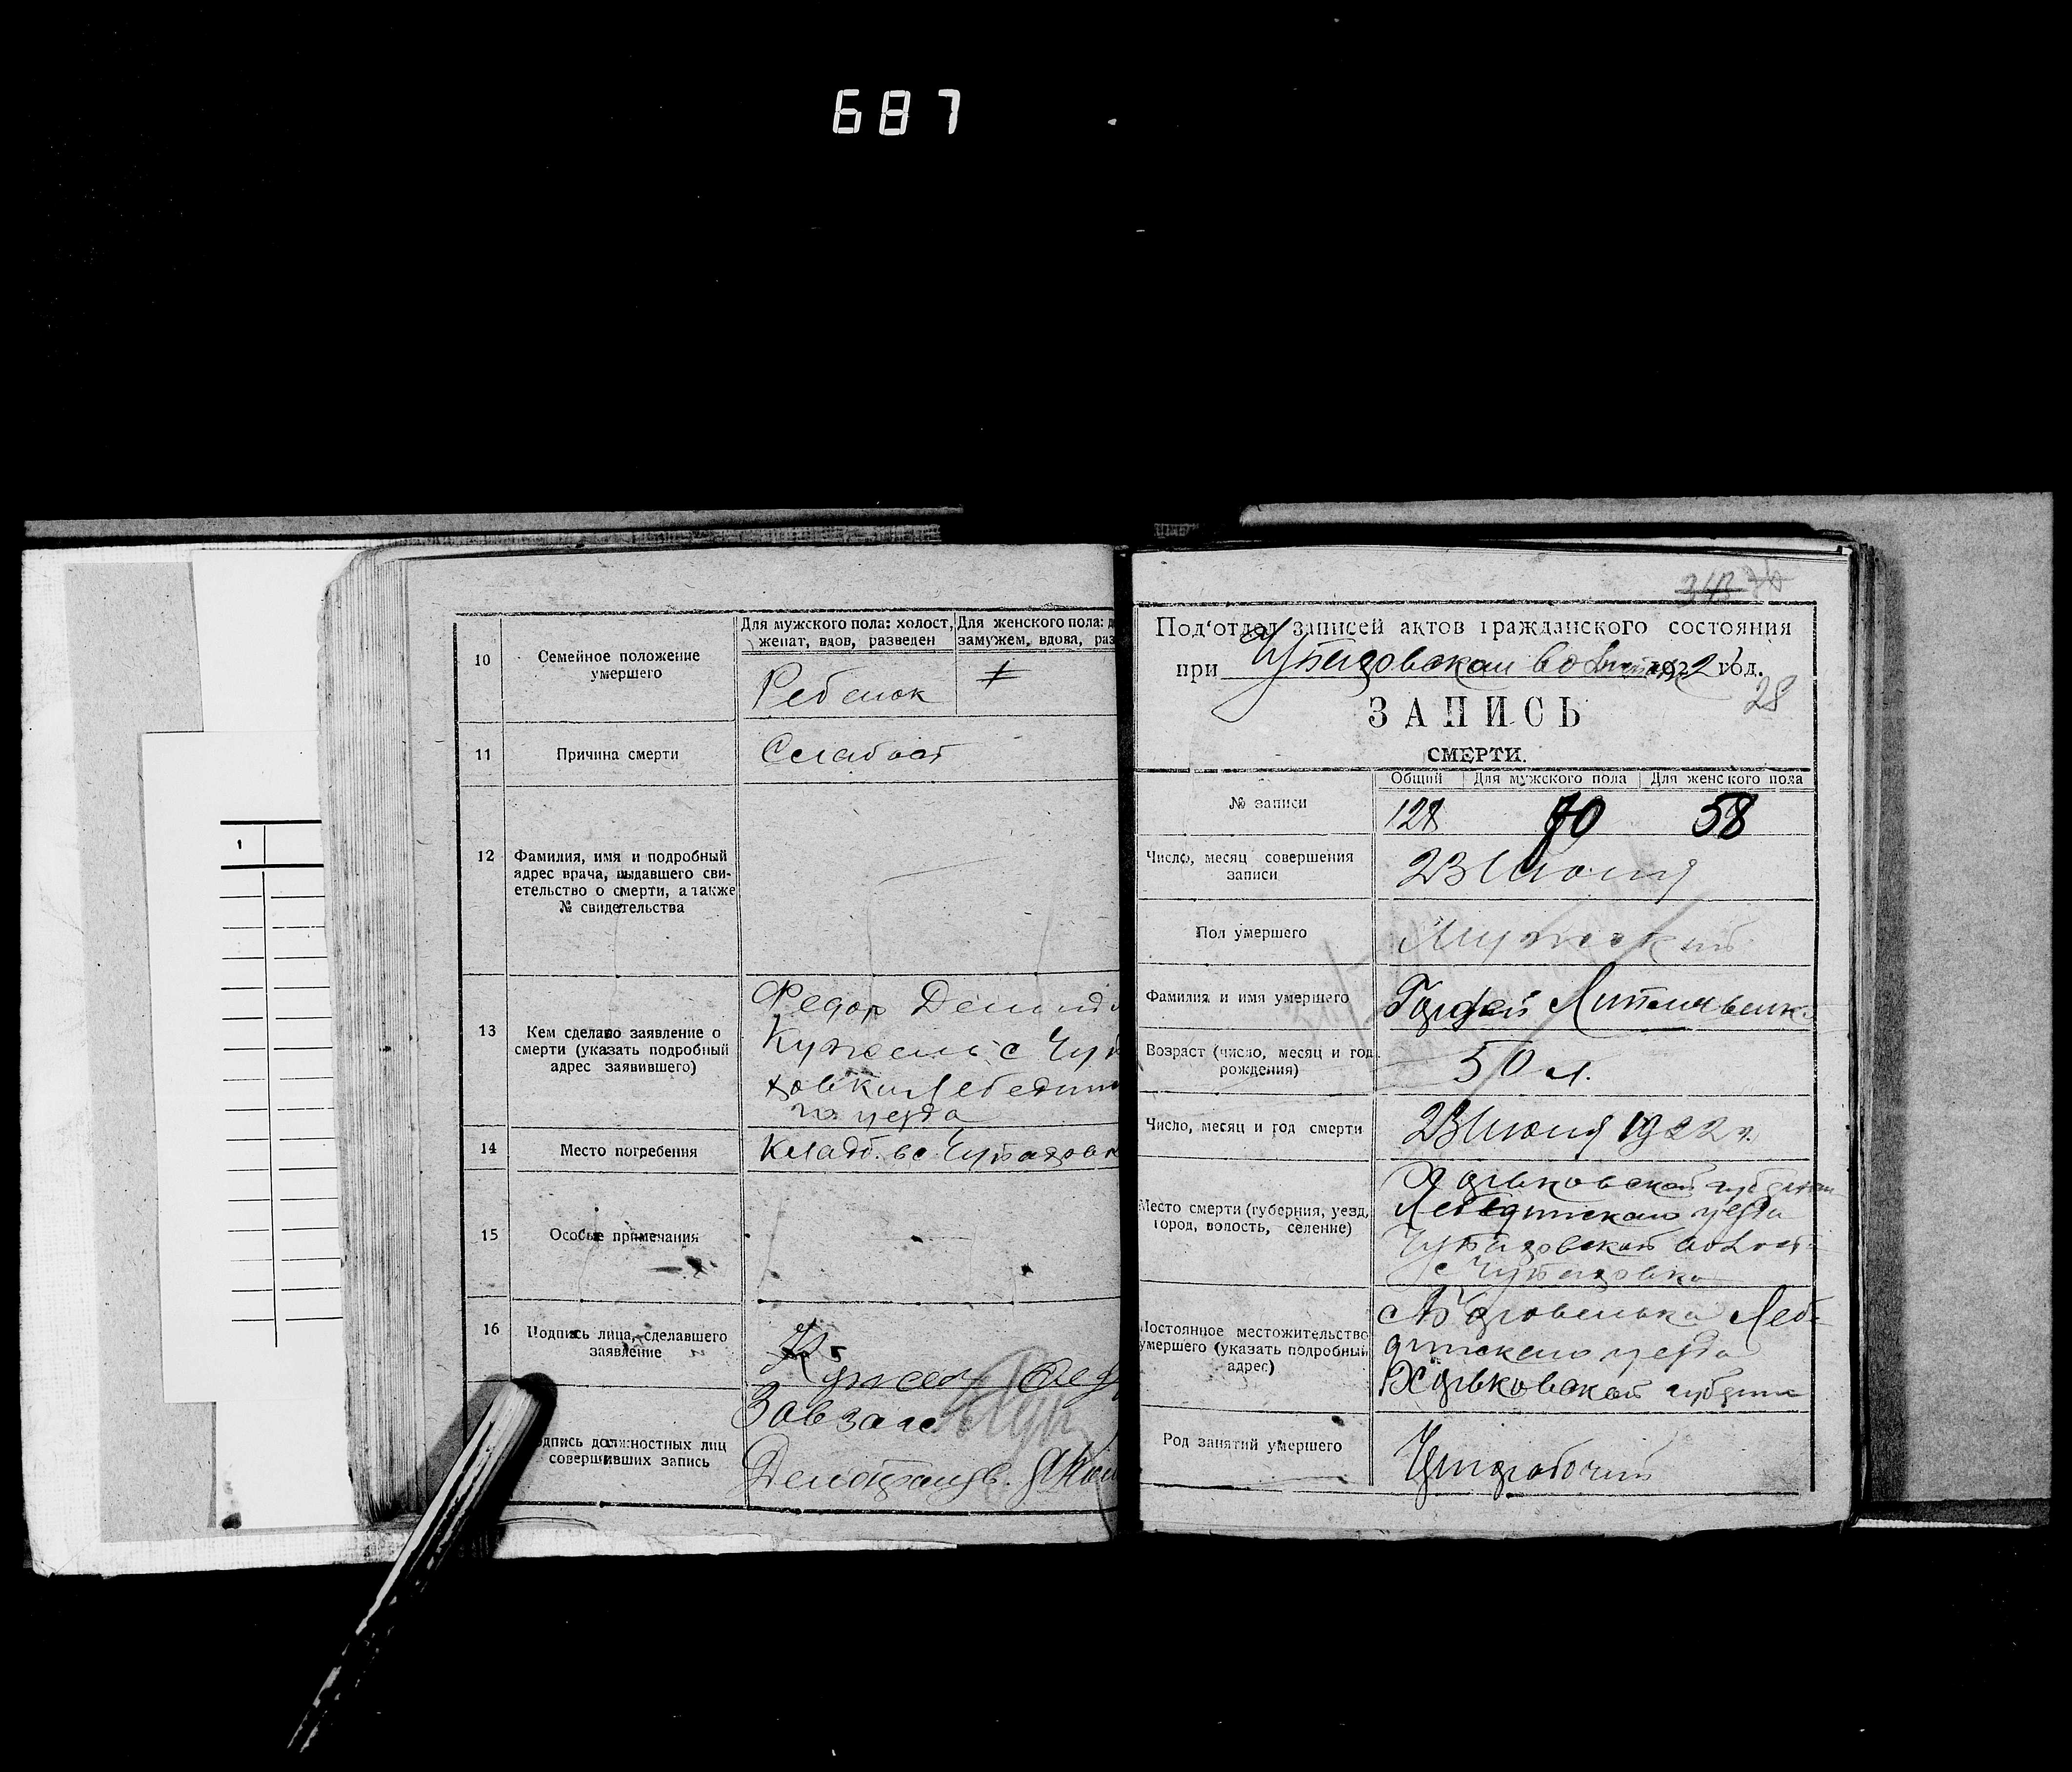 687
10
Семейное положение
умершего
Для мужского пола: холост,
женат, вдов, разведен
Для женского пола: д
замужем, вдова, раз
Ребенок
11
Причина смерти
Слабост
12
Фамилия, имя и подробный
адрес врача, выдавшего сви-
етельство о смерти, а также
№ свидетельства
13
Кем сделано заявление о
смерти (указать подробный
адрес заявившего)
Федор Демид
Кужель с Чуп
ховки Лебедин
го уезда
14
Место погребения
Кладб. в с. Чупаховк
15
Особые примечания
16
Подпись лица, сделавшего
заявление
Кужель Фед
одпись должностных лиц
совершивших запись
Завзаг
Делопроизв.
343
Под‘отдел записей актов гражданского состояния
при Чупаховском 1922 год.
28
ЗАПИСЬ
СМЕРТИ.
Общий Для мужского пола Для женского пола
№ записи
128 70 58
Число, месяц совершения
записи
23 Июня
Пол умершего
Мужской
Фамилия и имя умершего
Гордей
Возраст (число, месяц и год
рождения)
50 л.
Число, месяц и год смерти
23 Июня 1922 г.
Место смерти (губерния, уезд,
город, волость, селение)
Харьковской губернии
Лебединского уезда
Чупаховской волост
с Чупаховка
Постоянное местожительство
умершего (указать подробный
адрес)
Леб-
динского уезда
Харьковской губернии
Род занятий умершего
Чернорабочий